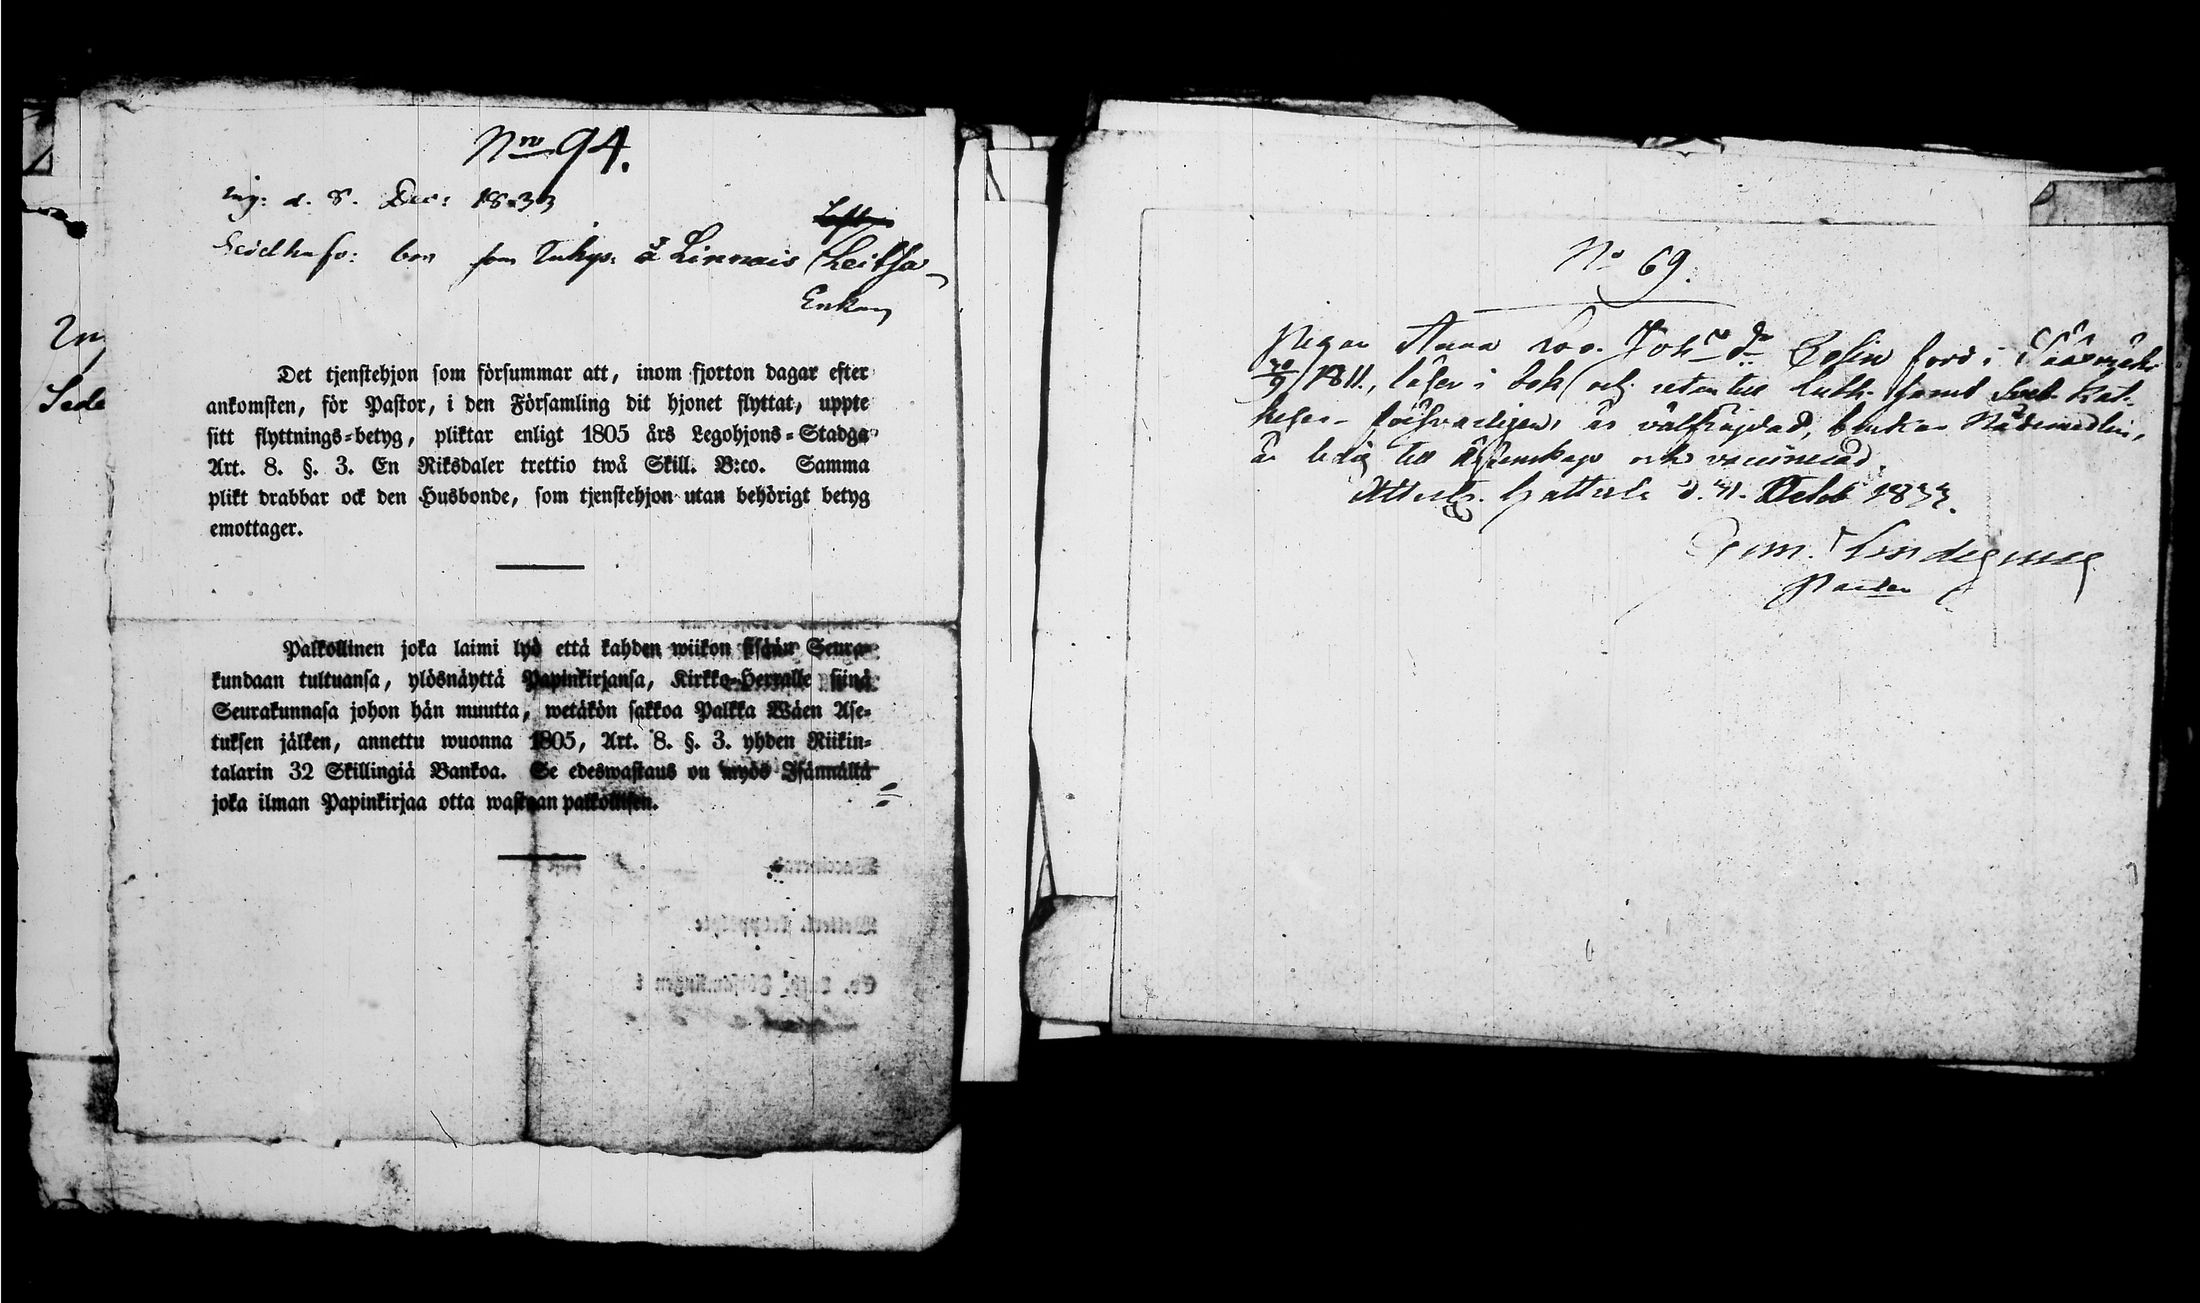 Nro 94.
ing: d. 8. Dec: 1833
bor som Inhys: å Linnais
Enkan
Det tjenstehjon som försummar att, inom fjorton dagar efter
ankomsten, för Pastor, i den Församling dit hjonet flyttat, uppte
sitt flyttnings=betyg, pliktar enligt 1805 års Legohjons=Stadga
Art. 8. §. 3. En Riksdaler trettio twå Skill. B:co. Samma
plikt drabbar ock den Husbonde, som tjenstehjon utan behörigt betyg
emottager.
Palkollinen joka laimi lyö että kahden wiikon sisään Seura=
kundaan tultuansa, ylösnäyttä Papinkirjansa, Kirkko=Herralle siinä
Seurakunnasa johon hän muutta, wetäkön sakkoa Palkka Wäen Ase=
tuksen jälken, annettu wuonna 1805, Art. 8. §. 3. yhden Riikin=
talarin 32 Skillingiä Bankoa. Se edeswastaus on myös Isännällä
joka ilman Papinkirjaa otta wastaan palkollisen.
No 69.
Pigan Anna Lov. Joh: dr född i
1811, läser i bok och utantill Luth. samt Sveb. Kat-
keser försvarligen, är välfrejdad, brukar Nådemedlen,
är ledig till äktenskap och vaccinerad.
Attest. Hattula d. 31. Octob 1833.
Pastor